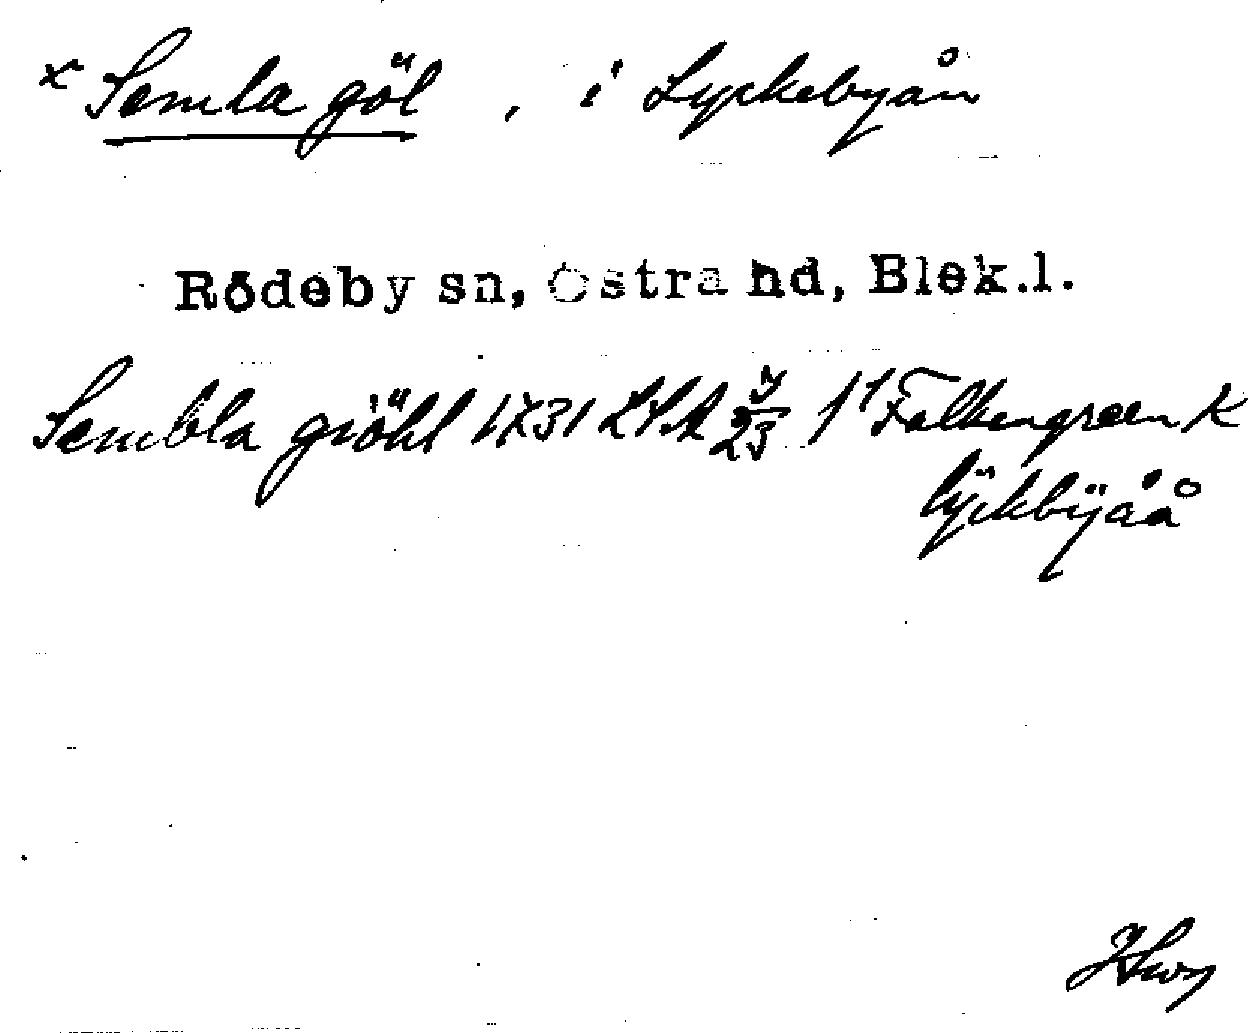 x Semla göl, i Lyckebyån
Rödeby sn, Östra hd, Blek.l.
Sembla giöhl 1731 LSA Falkengreen K
lÿckbÿåå